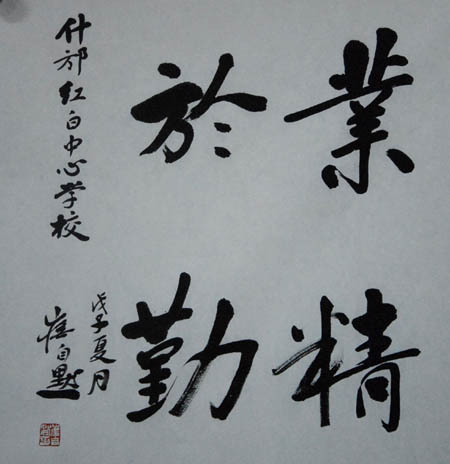 業精
於勤
什邡红白中心学校
戊子夏月
崔自默